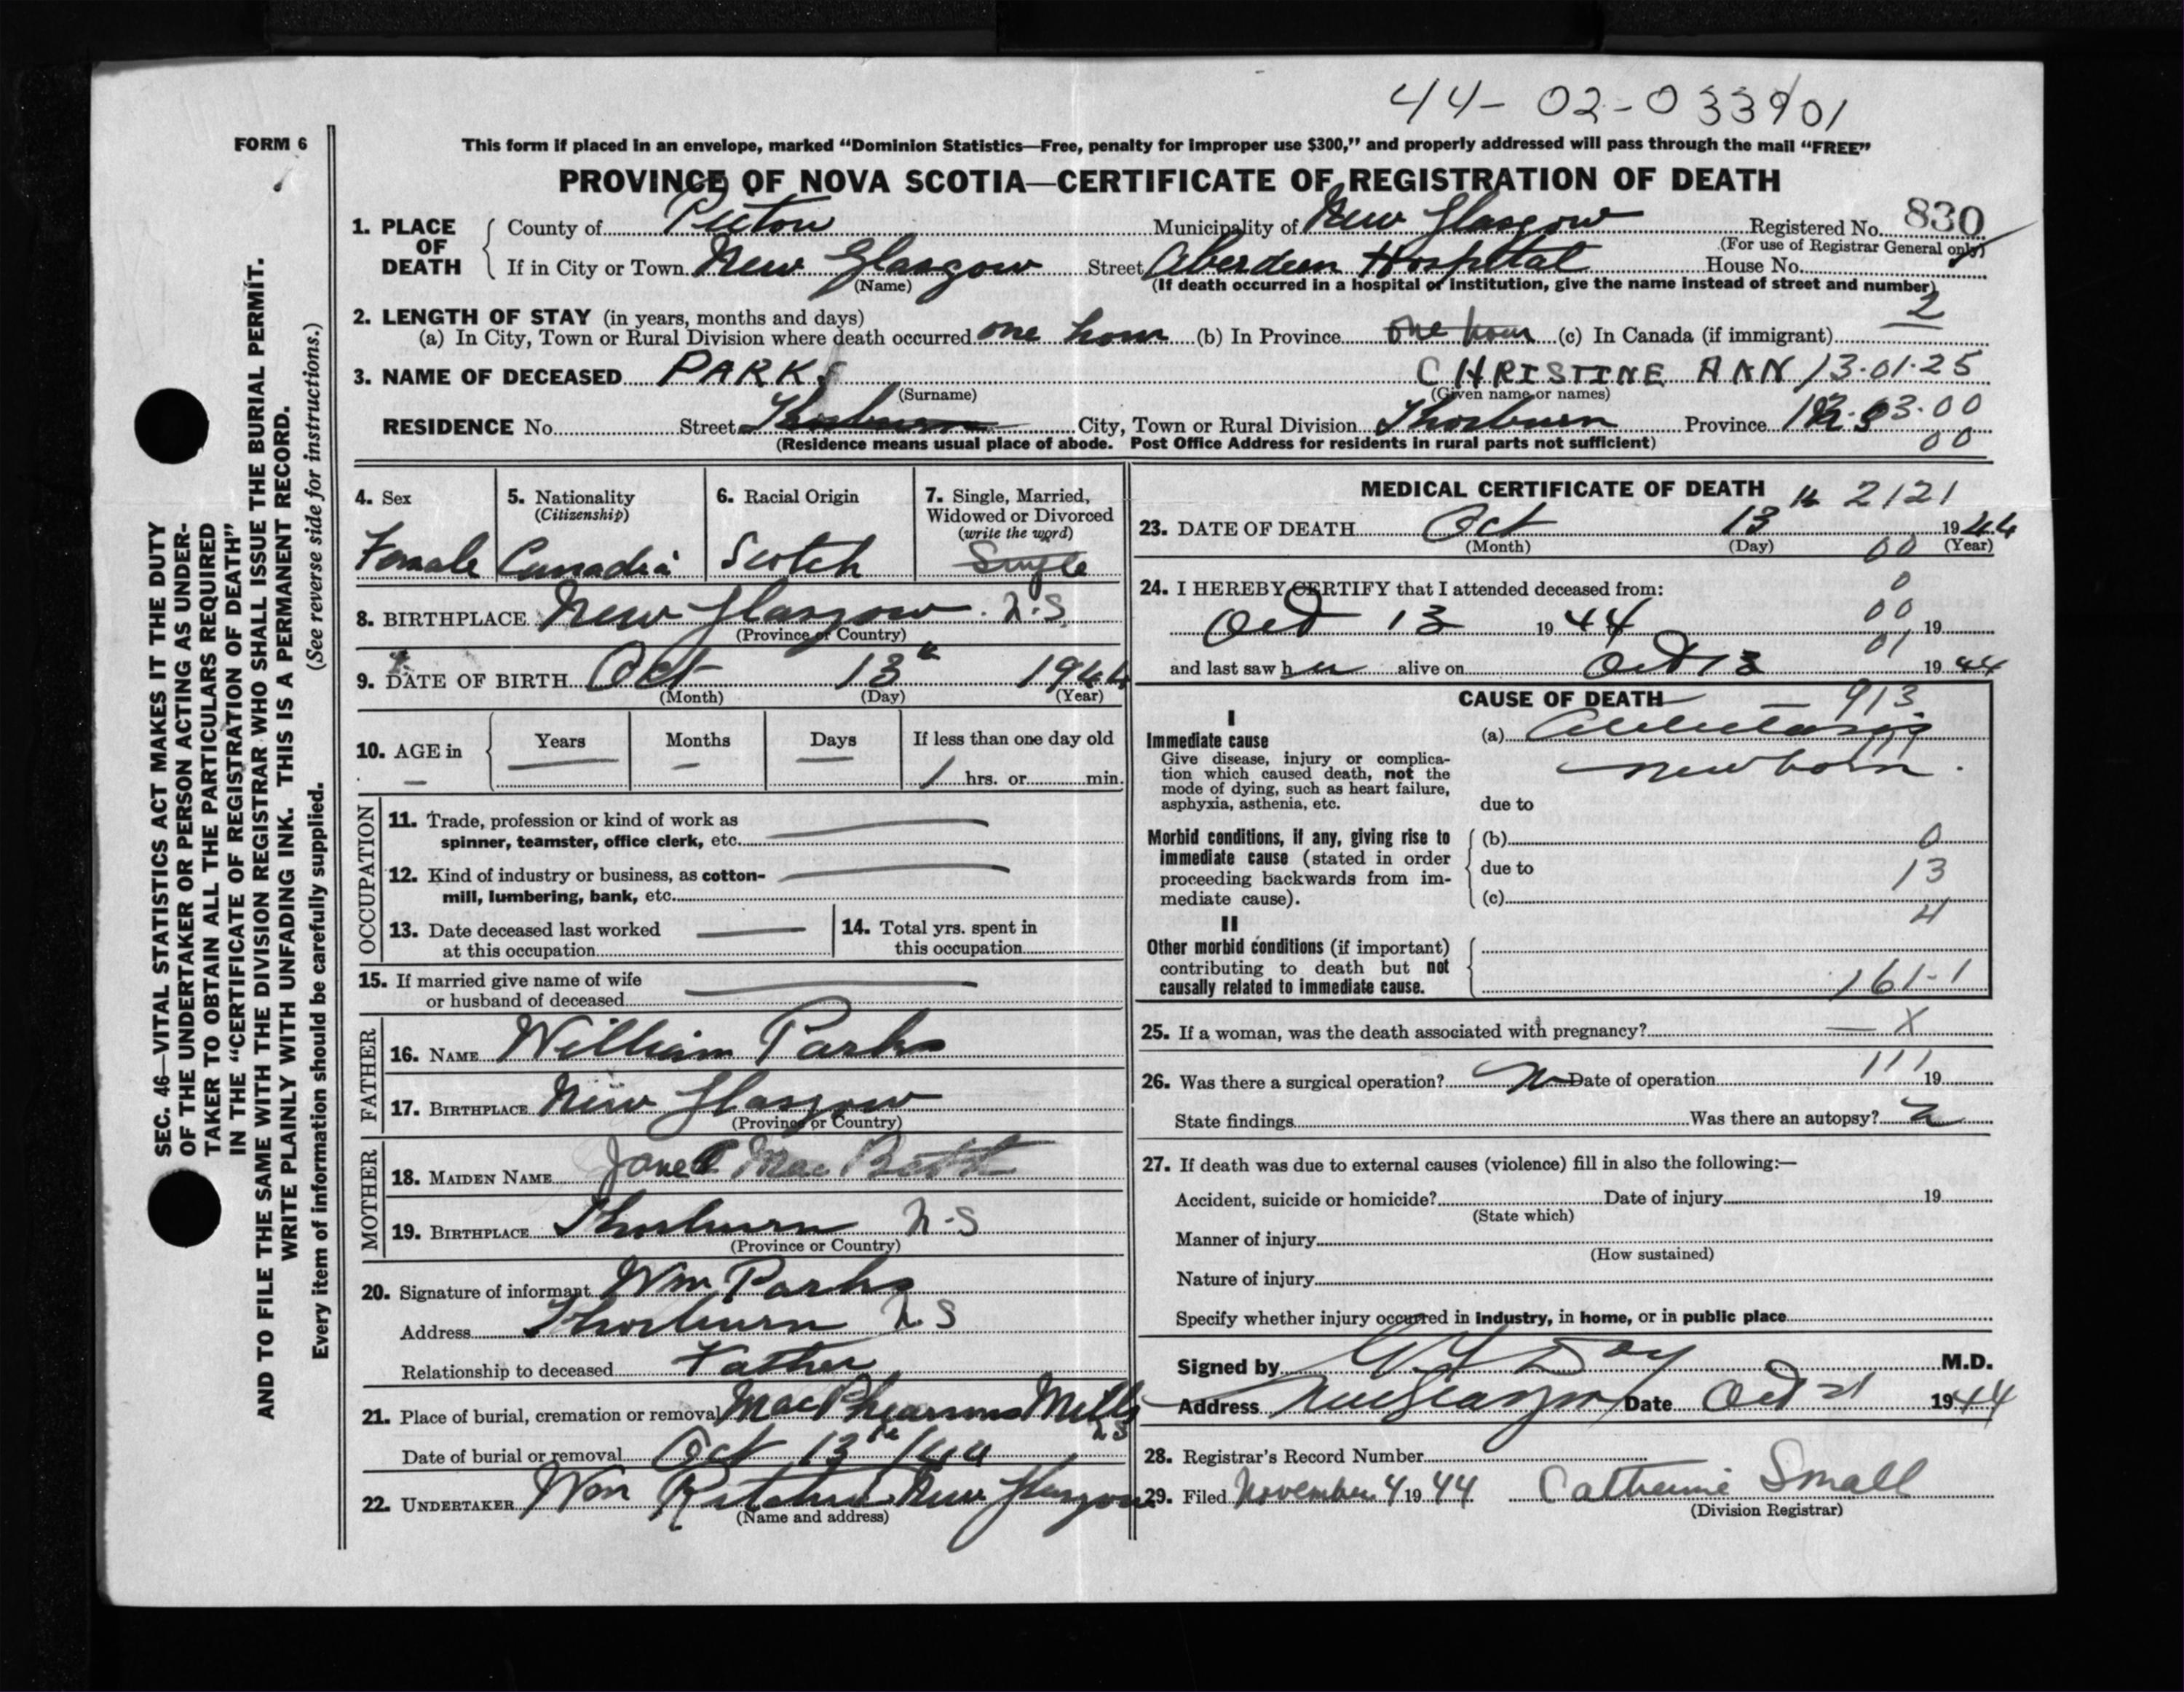 44-02-033901
FORM 6
This form if placed in an envelope, marked "Dominion Statistics—Free, penalty for improper use $300," and properly addressed will pass through the mail "FREE"
PROVINCE OF NOVA SCOTIA—CERTIFICATE OF REGISTRATION OF DEATH
1. PLACE OF DEATH County of Pictou Municipality of New Glasgow Registered No. 830
(For use of Registrar General only)
If in City or Town New Glasgow Street Aberdeen Hospital House No.
(Name) (If death occurred in a hospital or institution, give the name instead of street and number)
2
2. LENGTH OF STAY (in years, months and days)
(a) In City, Town or Rural Division where death occurred one hour (b) In Province one hour (c) In Canada (if immigrant)
3. NAME OF DECEASED PARKS CHRISTINE ANN 13-01-25
(Surname) (Given name or names)
RESIDENCE No. Street Thorburn City, Town or Rural Division Thorburn Province
(Residence means usual place of abode. Post Office Address for residents in rural parts not sufficient) 00
SEC. 46—VITAL STATISTICS ACT MAKES IT THE DUTY
OF THE UNDERTAKER OR PERSON ACTING AS UNDER-
TAKER TO OBTAIN ALL THE PARTICULARS REQUIRED
IN THE "CERTIFICATE OF REGISTRATION OF DEATH"
AND TO FILE THE SAME WITH THE DIVISION REGISTRAR WHO SHALL ISSUE THE BURIAL PERMIT.
WRITE PLAINLY WITH UNFADING INK. THIS IS A PERMANENT RECORD.
Every item of information should be carefully supplied. (See reverse side for instructions.)
4. Sex
Female
5. Nationality
(Citizenship)
Canadia
6. Racial Origin
Scotch
7. Single, Married,
Widowed or Divorced
(write the word)
Single
8. BIRTHPLACE New Glasgow. N.S
(Province or Country)
9. DATE OF BIRTH Oct 13th 1944
(Month) (Day) (Year)
10. AGE in Years Months Days If less than one day old
1 hrs. or min.
OCCUPATION
11. Trade, profession or kind of work as
spinner, teamster, office clerk, etc.
12. Kind of industry or business, as cotton-
mill, lumbering, bank, etc.
13. Date deceased last worked
at this occupation
14. Total yrs. spent in
this occupation
15. If married give name of wife
or husband of deceased
FATHER
16. NAME William Parks
17. BIRTHPLACE New Glasgow
(Province or Country)
MOTHER
18. MAIDEN NAME Janet Mac Beth
19. BIRTHPLACE Thorburn N.S
(Province or Country)
20. Signature of informant Wm Parks
Address Thorburn N.S
Relationship to deceased Father
21. Place of burial, cremation or removal MacPhearsons Mills
N.S
Date of burial or removal Oct 13th / 44
22. UNDERTAKER Wm New Glasgow
(Name and address)
MEDICAL CERTIFICATE OF DEATH 2121
23. DATE OF DEATH Oct 13th 1944
(Month) (Day) 00 (Year)
24. I HEREBY CERTIFY that I attended deceased from: 0
00
Oct 13 1944 19
01
and last saw her alive on Oct 13 1944
CAUSE OF DEATH 913
I
Immediate cause
Give disease, injury or complica-
tion which caused death, not the
mode of dying, such as heart failure,
asphyxia, asthenia, etc.
(a) Atelectasis
newborn.
due to
Morbid conditions, if any, giving rise to
immediate cause (stated in order
proceeding backwards from im-
mediate cause).
(b) 0
due to 13
(c) 4
II
Other morbid conditions (if important)
contributing to death but not
causally related to immediate cause. 161-1
25. If a woman, was the death associated with pregnancy? — X
26. Was there a surgical operation? no Date of operation 111 19
State findings Was there an autopsy? no
27. If death was due to external causes (violence) fill in also the following:—
Accident, suicide or homicide? Date of injury 19
(State which)
Manner of injury
(How sustained)
Nature of injury
Specify whether injury occurred in industry, in home, or in public place
Signed by Day M.D.
Address New Glasgow Date Oct 21 1944
28. Registrar's Record Number
29. Filed November 4 1944 Catherine Small
(Division Registrar)